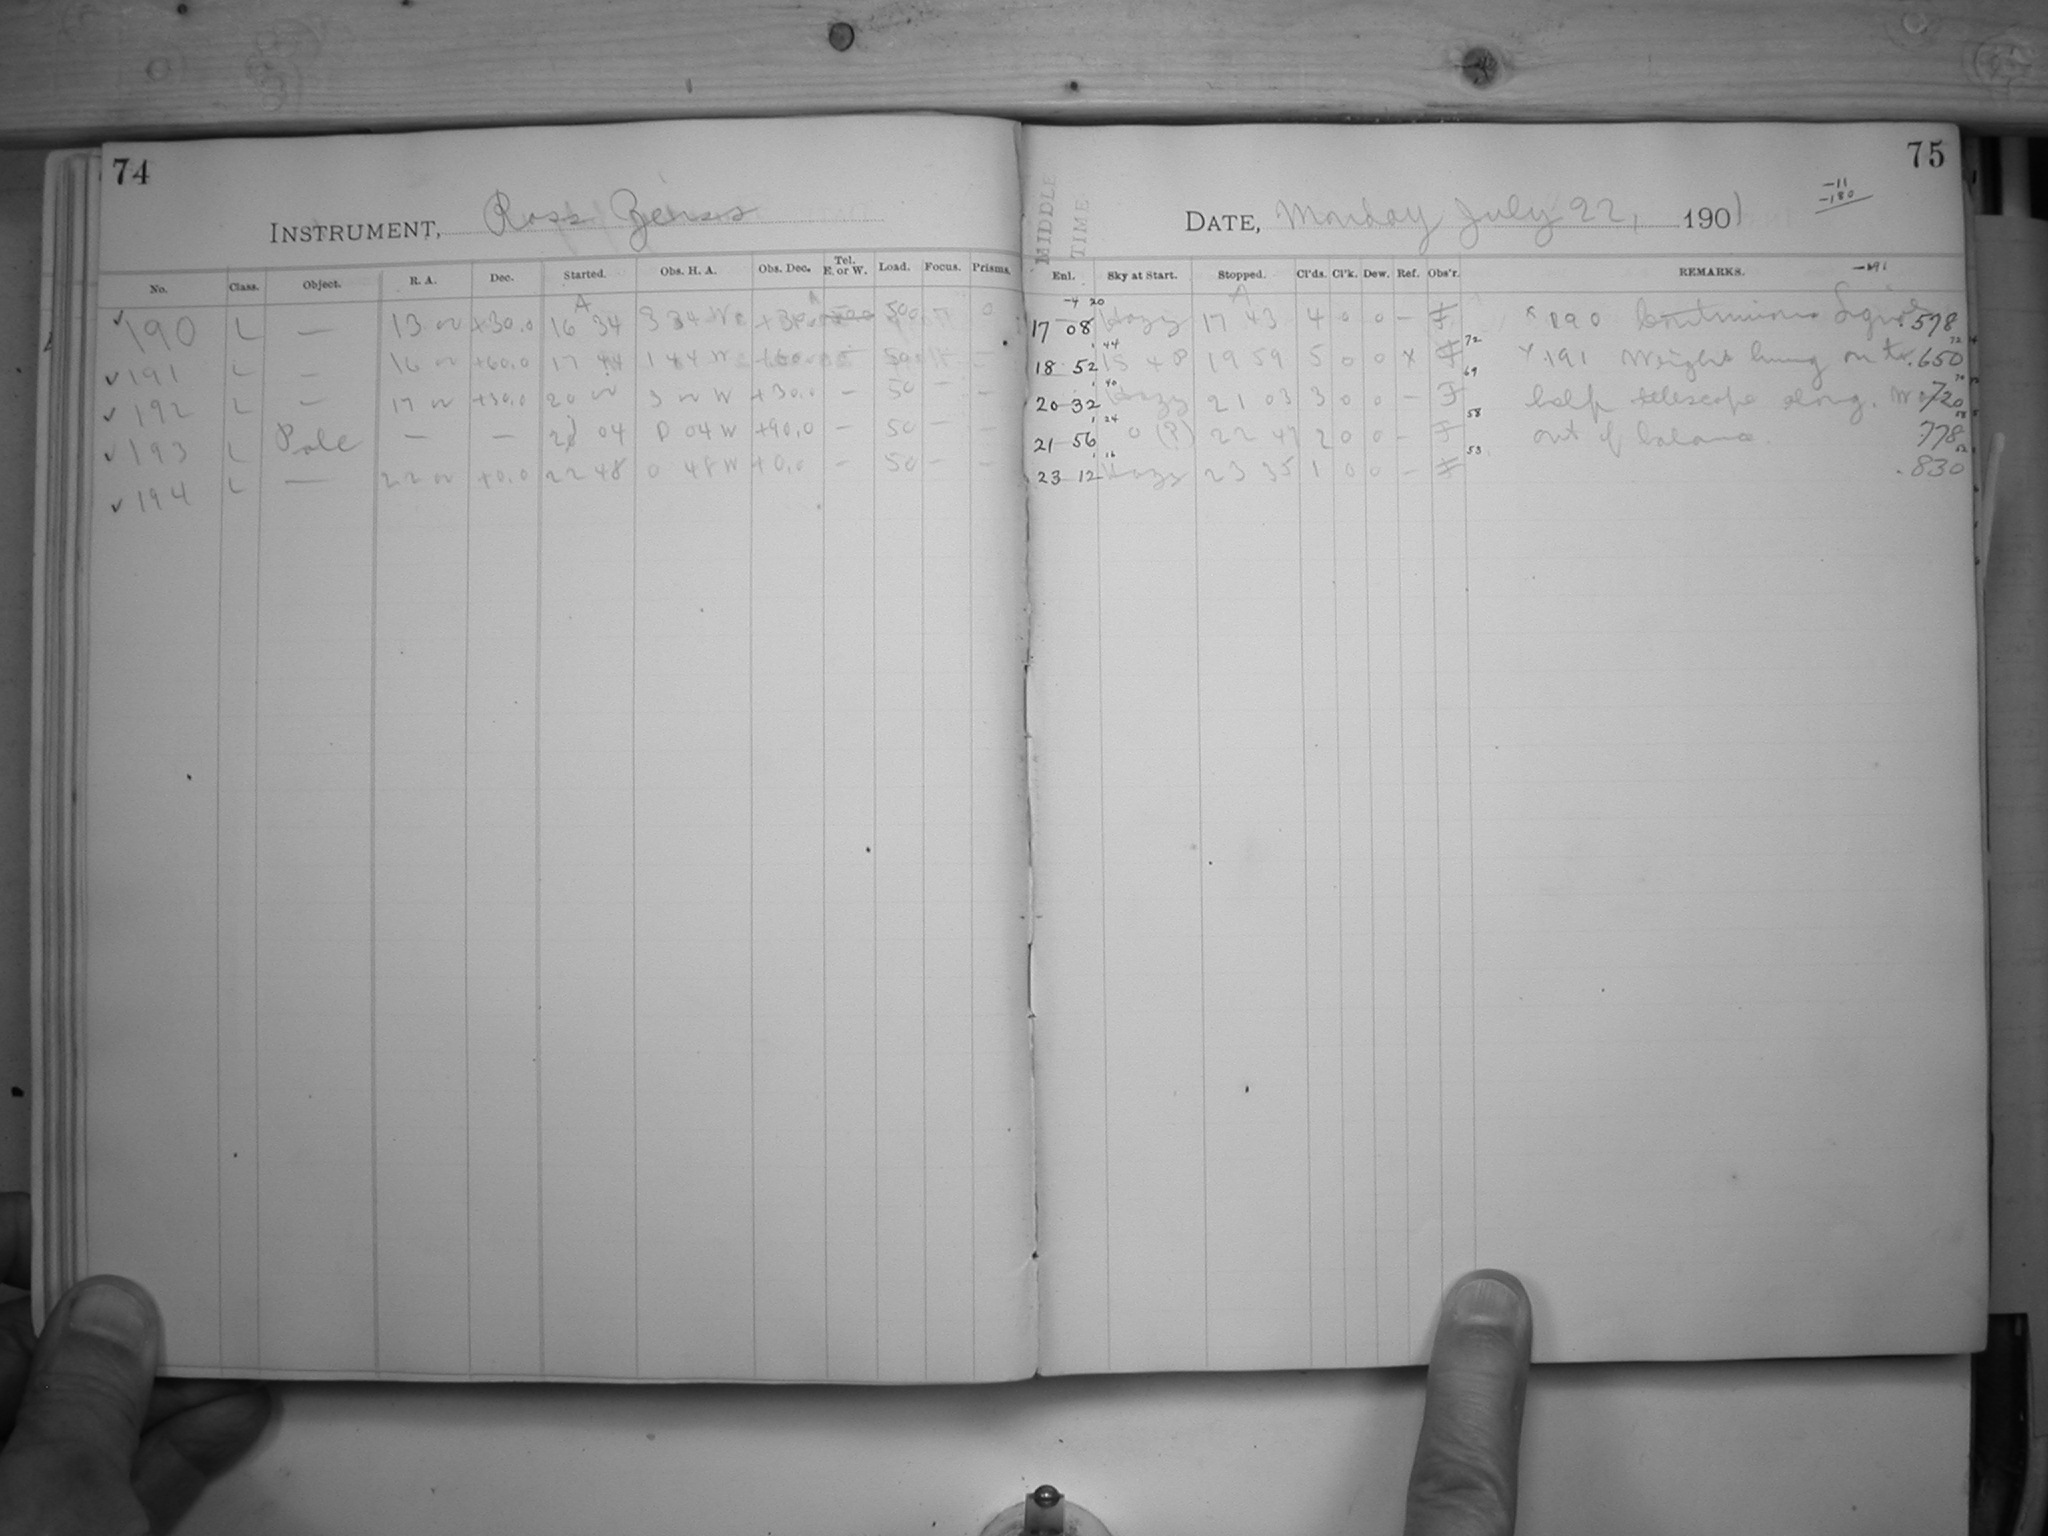 74
INSTRUMENT, Ross Zeiss
No. Class. Object. R. A. Dec. Started. Obs. H. A. Obs. Dec. Tel. E. or W. Load. Focus. Prisms.
190 L — 13 00 +30.0 16 34 3 34 W +30.0 50 0
191 L — 16 00 +60.0 17 44 1 44 W +60.0 50 —
192 L — 17 00 +30.0 20 00 3 00 W +30.0 — 50 — —
193 L Pole — — 21 04 0 04 W +90.0 — 50 — —
194 L — 22 00 +0.0 22 48 0 48 W +0.0 — 50 — —
75
MIDDLE TIME
DATE, Monday July 22, 1901
-11
-180
-191
Enl. Sky at Start. Stopped. Cl'ds. Cl'k. Dew. Ref. Obs'r. REMARKS.
-4 20
17 08 Hazy 17 43 4 0 0 — F x 190 Continuous .578
44 72
18 52 19 59 5 0 0 x F x 191 Weight hung on to .650
40 69
20 32 Hazy 21 03 3 0 0 — F help telescope along. Was 720
24 58
21 56 0 (P) 22 47 2 0 0 — F out of balance. 778
16 53
23 12 Hazy 23 35 1 0 0 — F .830